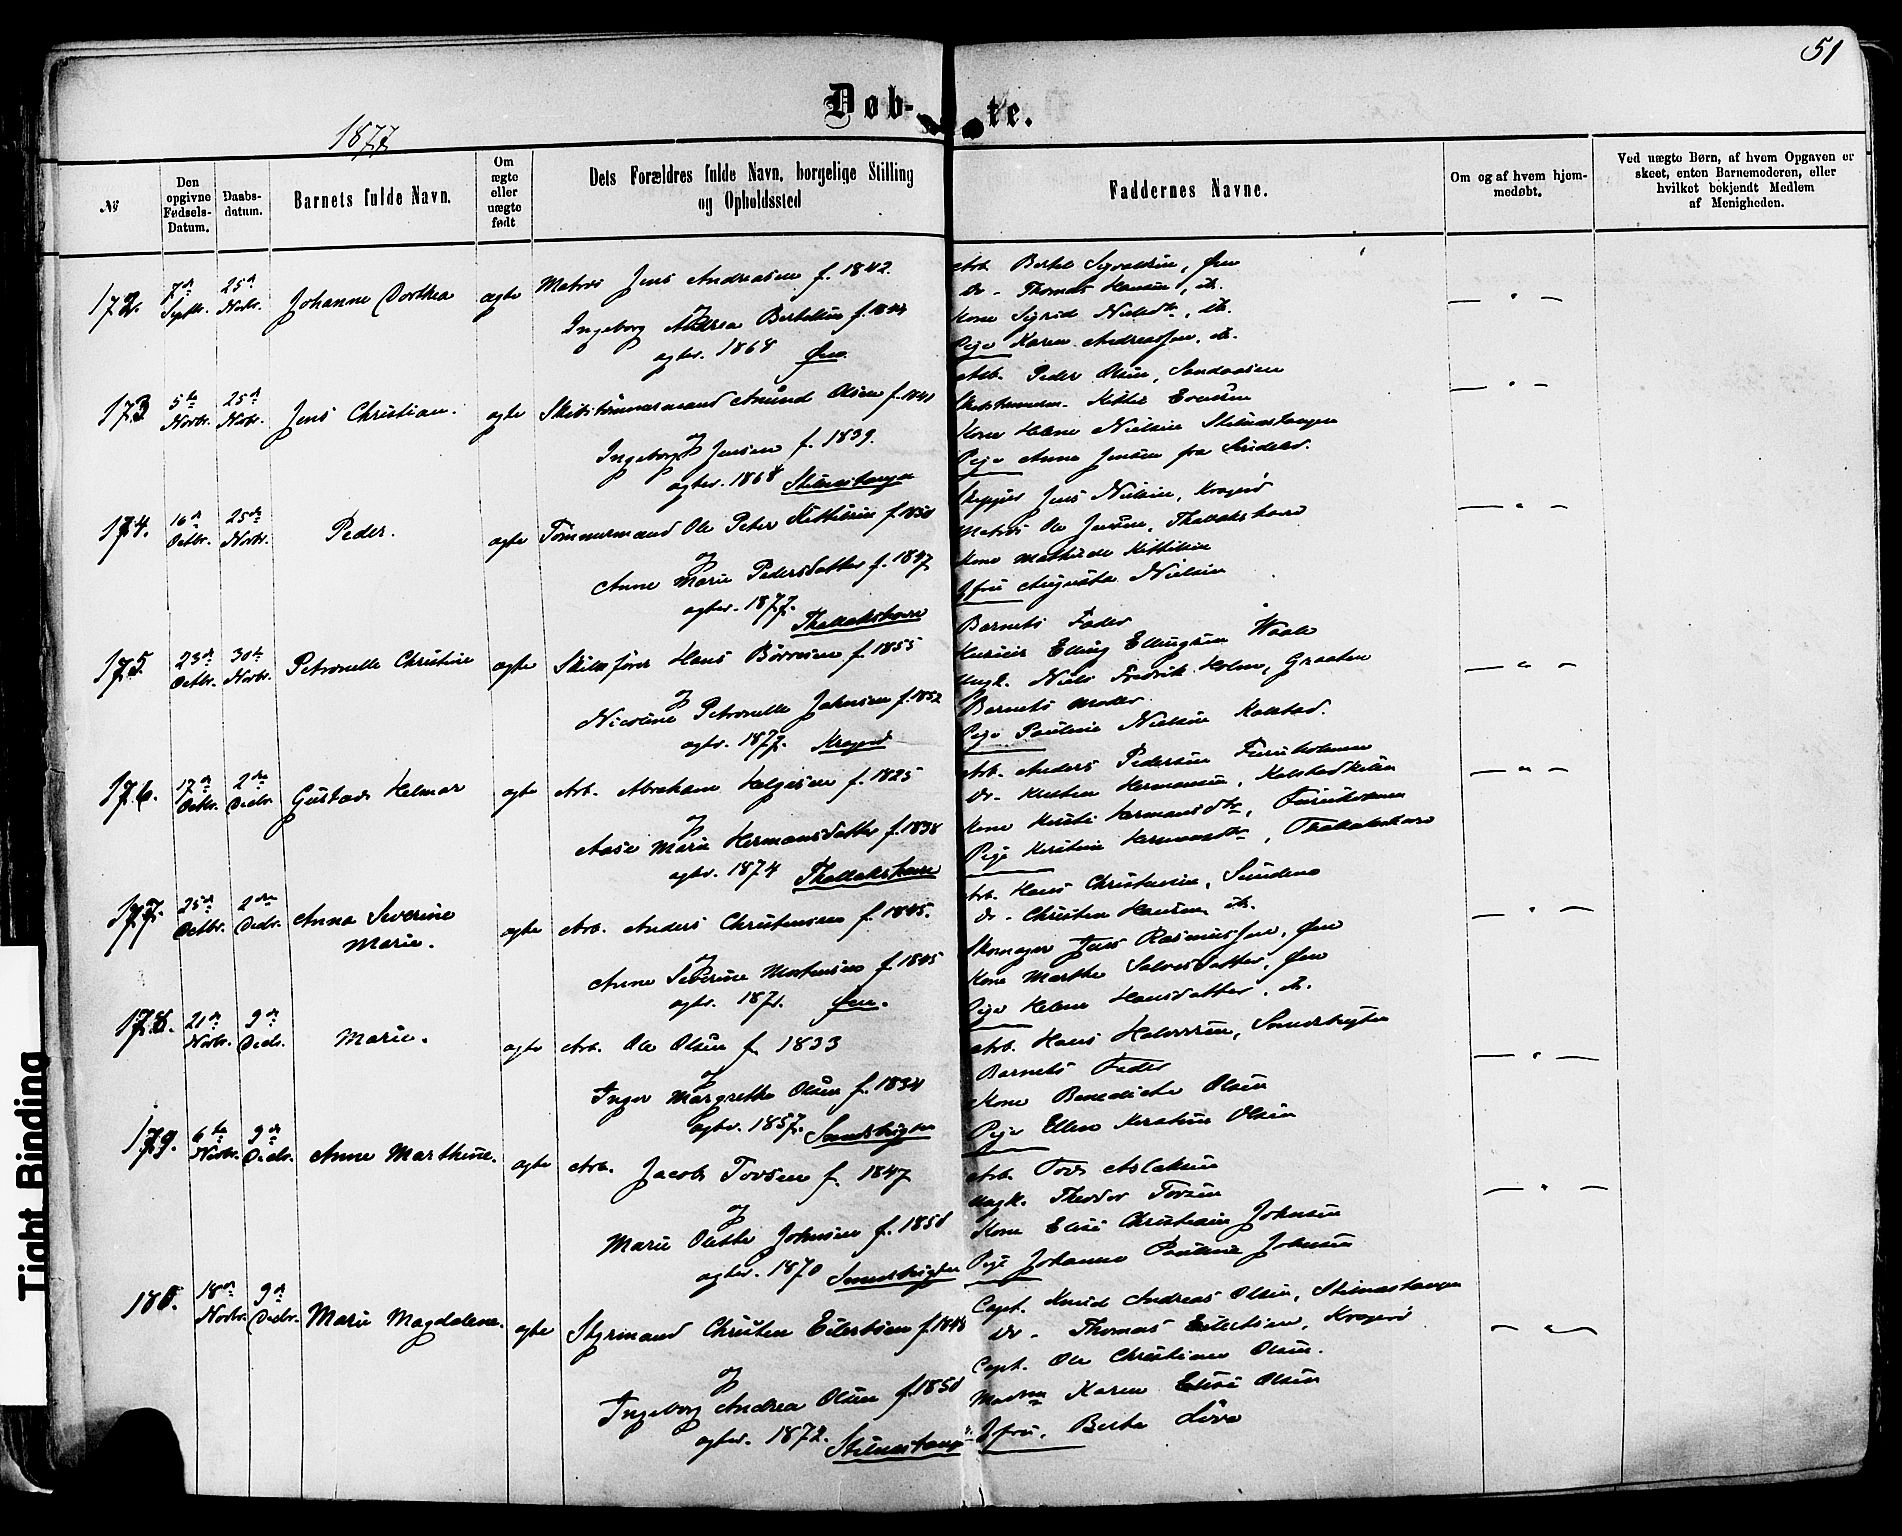 51
Døb-te.
1877
№
Den opgivne Fødsels-Datum.
Daabs-datum.
Barnets fulde Navn.
Om ægte eller uægte født
Dets Forældres fulde Navn, borgelige Stilling og Opholdssted
Faddernes Navne.
Om og af hvem hjem-medøbt.
Ved uægte Børn, af hvem Opgaven er skeet, enten Barnemoderen, eller hvilket bekjendt Medlem af Menigheden.
172. 7de Septbr. 25de Novbr. Johanne Dorthea ægte Matros Jens Andreasen f. 1842.
og
Ingeborg Andrea Bertelsen f. 1844
ægtev. 1868 Øen
Arb. Bertel Sigvaldsen, Øen
Do - Thomas Hansen, ib.
Kone Sigrid Nielsdtr, ib.
Pige Karen Andreassen, ib.
173 5te Novbr. 25de Novbr. Jens Christian. ægte Skibstømmermand Amund Olsen f. 1841
og
Ingeborg Jensen f. 1839.
ægtev. 1868 Stilnestangen
Arb. Peder Olsen, Sandaasen
Kittel Evensen
Kone Helene Nielsen Stilnestangen
Pige Anne Jensen fra
174. 16de Octbr. 25de Novbr. Peder. ægte Tømmermand Ole Peter Kittilsen f. 1850
og
Anne Marie Pedersdatter f. 1847
ægtev. 1877. Thallakshavn
Skipper Jens Nielsen, Kragerø
Matros Ole Jensen, Thallakshavn
Kone Mathilde Kittilsen
Jfru Augusta Nielsen
175 23de Octbr. 30te Novbr. Petronelle Christine ægte Skibsfører Hans Børresen f. 1855
og
Nicoline Petronelle Johnsen f. 1852
ægtev. 1877. Kragerø
Barnets Fader
Elling Ellingsen Waale
Ungk. Niels Fredrik Holm, Graaten
Barnets Moder
Pige Pauline Nielsen Kalstad.
176. 17de Octbr. 2den Decbr. Gustav Helmer ægte Arb. Abraham Helgesen f. 1825
og
Aase Marie Hermansdatter f. 1838
ægtev. 1874 Thallakshavn
Arb. Anders Pedersen Furuholmen
Do - Hermansen, Kalstadkilen
Kone Kirsti Hermansdtr, Furuholmen
Pige Kirstine Hermansdtr, Thallakshavn
177. 25de Octbr. 2den Decbr. Anna Severine Marie. ægte Arb. Anders Christensen f. 1845.
og
Anne Severine Mortensen f. 1845
ægtev. 1871. Øen.
Arb. Hans Christensen,
Do - Christen Hansen, ib.
Skomager Jens Rasmussen, Øen
Kone Marthe Salvesdatter, Øen
Pige Helene Hansdatter, ib.
178. 21de Novbr. 9de Decbr. Marie. ægte Arb. Ole Olsen f. 1833
og
Inger Margrethe Olsen f. 1834
ægtev. 1857. Smedsbugten
Arb. Hans Halvorsen, Smedsbugten
Barnets Fader
Kone Benedicte Olsen
Pige Ellen Kirstine Olsen
179. 6te Novbr. 9de Decbr. Anne Marthine. ægte Arb. Jacob Tovsen f. 1847
og
Marie Olette Johnsen f. 1850
ægtev. 1870 Smedsbugten
Arb. Tov Aslaksen
Ungk. Theodor Tovsen
Kone Elise Christiane Johnsen
Pige Johanne Pauline Johnsen
180. 18de Novbr. 9de Decbr. Marie Magdalene. ægte Styrmand Christen Eilertsen f. 1848
og
Ingeborg Andrea Olsen f. 1850
ægtev. 1872. Stilnestangen
Capt. Knud Andreas Olsen, Stilnestangen
Do - Thomas Eilertsen, Kragerø
Capt. Ole Christian Olsen.
Madm Karen Elise Olsen
Jfru. Berthe Løvo
Tight Binding